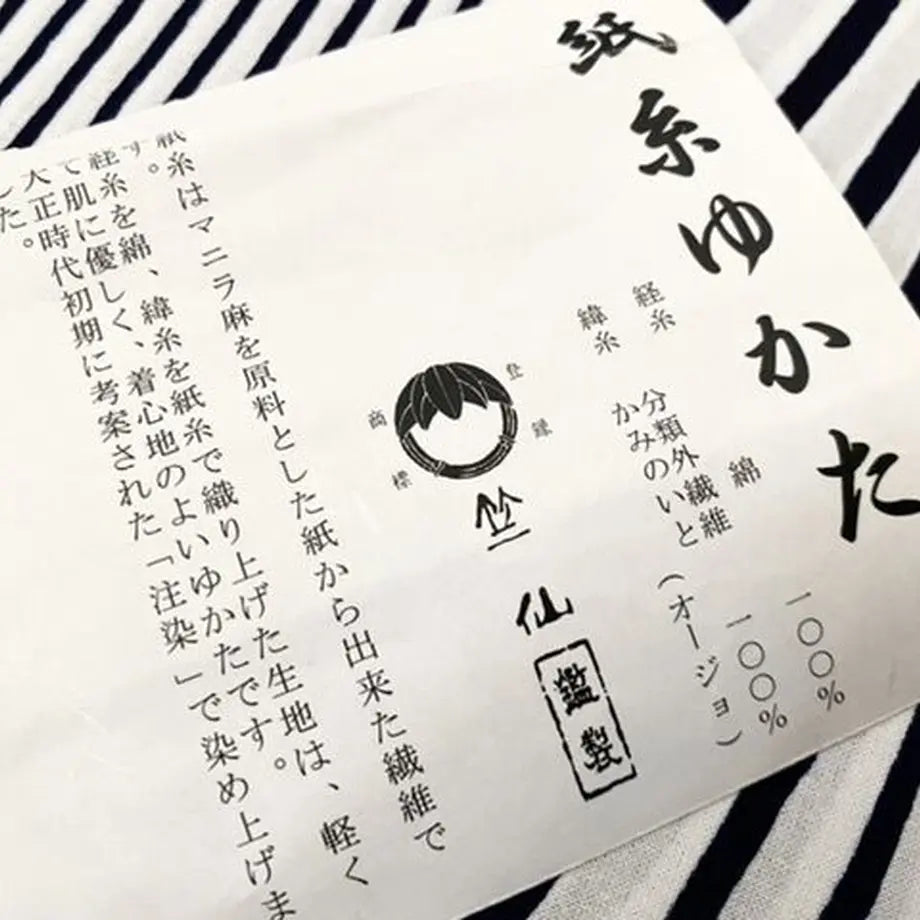 紙糸ゆかた
経糸 綿 一〇〇%
緯糸 分類外繊維 一〇〇%
かみのいと(オージョ)
登録
商標
竺仙
鑑製
紙糸はマニラ麻を原料とした紙から出来た繊維で
す。
経糸を綿、緯糸を紙糸で織り上げた生地は、軽く
て肌に優しく、着心地のよいゆかたです。
大正時代初期に考案された「注染」で染め上げま
した。